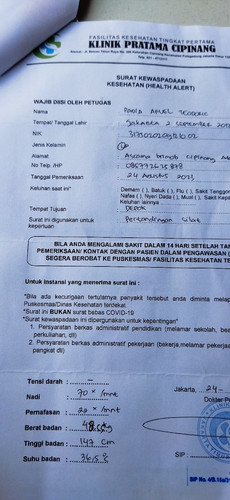 FASILITAS KESEHATAN TINGKAT PERTAMA
KLINIK PRATAMA CIPINANG
SURAT KEWASPADAAN
KESEHATAN (HEALTH ALERT)
WAJIB DIISI OLEH PETUGAS
Nama
Tempat/ Tanggal Lahir : Jakarta 2 September
NIK
Jenis Kelamin
Alamat : Asrama Brimob Cipinang
No.Telp. /HP
Tanggal Pemeriksaan : 24 Agustus 2023
Keluhan saat ini* : Demam ( ), Batuk ( ), Flu ( ), Sakit Tenggor
Nafas ( ), Nyeri Dada ( ), Mual ( ), Sakit Kepa
Keluhan lainnya
Tempat Tujuan : Depok
Surat ini digunakan untuk : Pertandingan Silat
keperluan
BILA ANDA MENGALAMI SAKIT DALAM 14 HARI SETELAH TAN
PEMERIKSAAN/ KONTAK DENGAN PASIEN DALAM PENGAWASAN (
SEGERA BEROBAT KE PUSKESMAS/ FASILITAS KESEHATAN TE
Untuk Instansi yang menerima surat ini :
*Bila ada kecurigaan tertularnya penyakit tersebut anda diminta melap
Puskesmas/Dinas Kesehatan terdekat.
*Surat ini BUKAN surat bebas COVID-19
*Surat kewaspadaan ini dipergunakan untuk kepentingan*
1. Persyaratan berkas administratif pendidikan (melamar sekolah, bea
perkuliahan, dll)
2. Persyaratan administratif pekerjaan (bekerja,melamar pekerjaa
pangkat dll)
Tensi darah : –
Nadi : 70 x/mnt
Pernafasan : 20 x/mnt
Berat badan : kg
Tinggi badan : 147 cm
Suhu badan : 36,5 °C
Jakarta, 24 -
Dokter P
SIP :